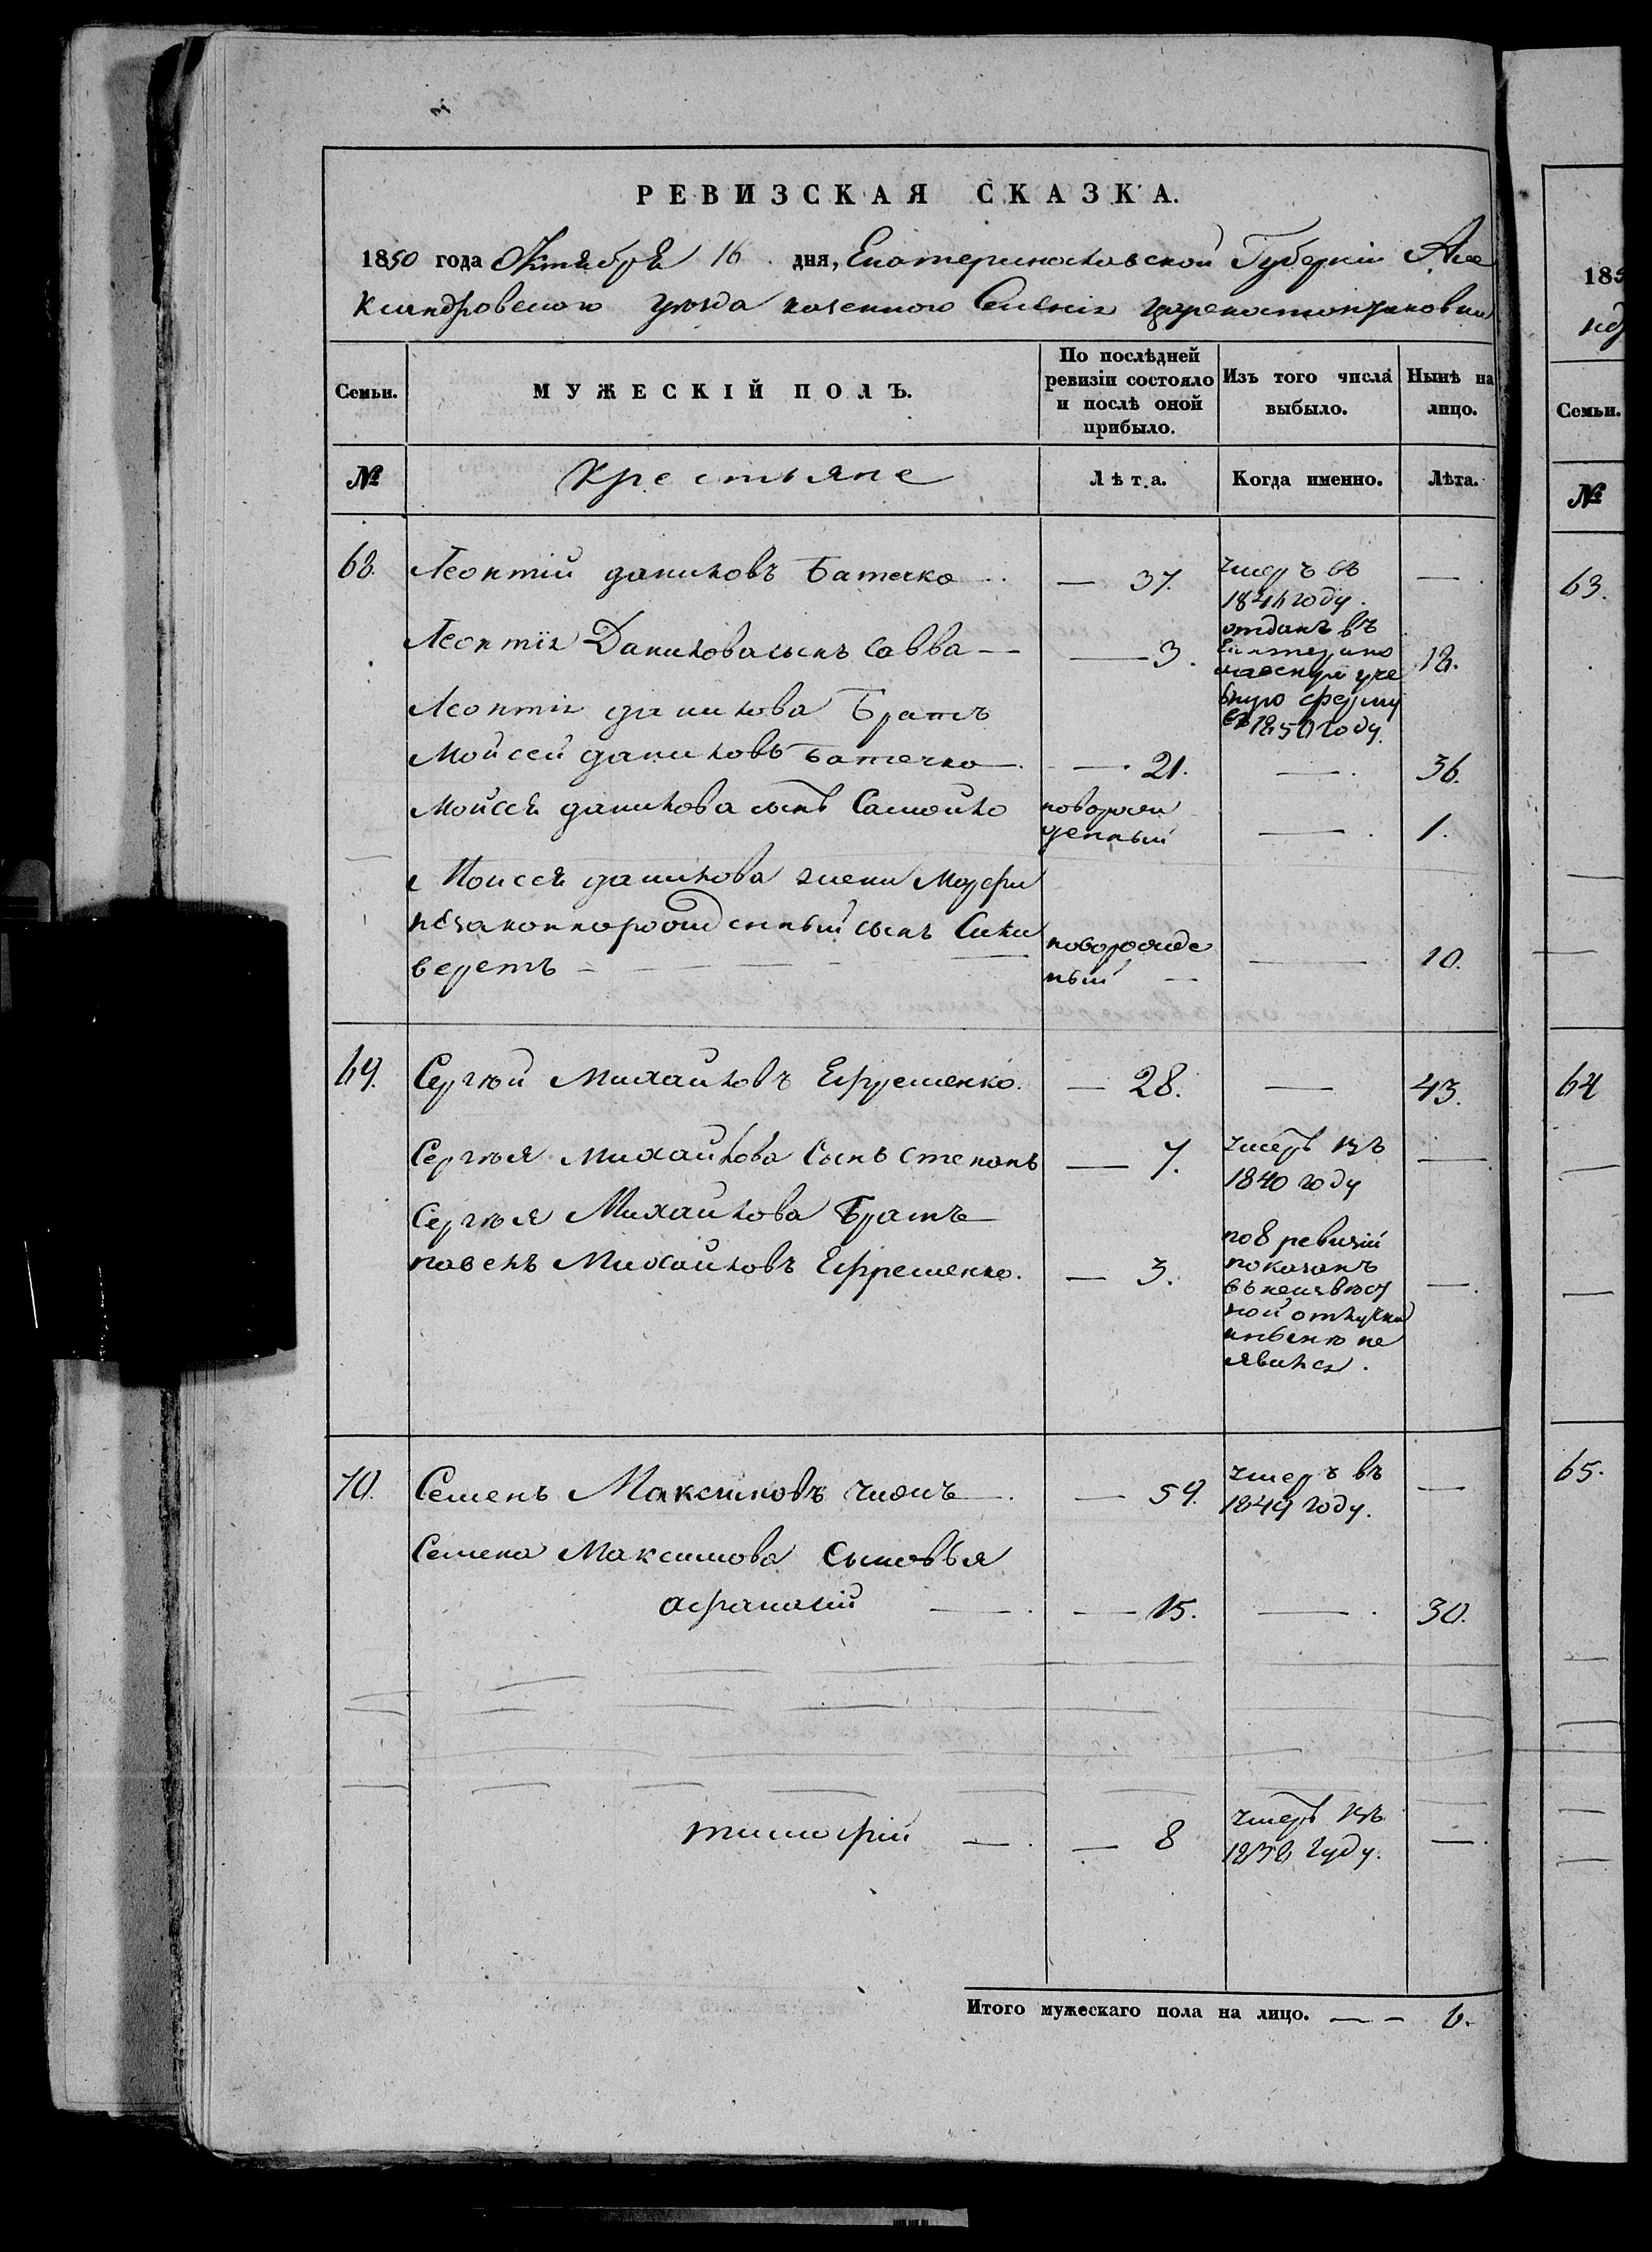 РЕВИЗСКАЯ СКАЗКА.
1850 года Октября 16 дня, Екатеринославской Губерніи Але
ксандровского уѣзда казенного Селенія Цареконстантиновки
Семьи. МУЖЕСКІЙ ПОЛЪ. По послѣдней ревизіи состояло и послѣ оной прибыло. Изъ того числа выбыло. Нынѣ на лицо.
№ Крестьяне Лѣта. Когда именно. Лѣта.
68. Леонтій даниловъ Батечко — 37. умеръ въ —
году.
Леонтія Данилова сынъ Савва — 3. отданъ въ Екатерино славскую уче бную ферму въ 1850 году. 18.
Леонтія данилова Братъ
Мойсей даниловъ Батечко — 21. — 36.
Мойсея данилова сынъ Самойло новорож денный — 1.
Моисея данилова жены Марфи
незаконнорожденный сынъ Сили
верстъ — новорожде ный — 10.
69. Сергѣй Михайловъ Ефременко. — 28. — 43.
Сергѣя Михайлова Сынъ Степанъ — 7. умеръ въ 1840 году —
Сергѣя Михайлова Братъ
павелъ Михайловъ Ефременко. — 3. по 8 ревизій показанъ въ неизвѣст ной отлучки инѣ не явился. —
70. Семенъ Максимовъ — 59. умеръ въ 1849 году. —
Семена Максимова Сыновья
афанасій — 15. — 30.
тимофій — 8 умеръ въ году. —
Итого мужескаго пола на лицо. — 6.
185
Семьи.
№
63.
64
65.